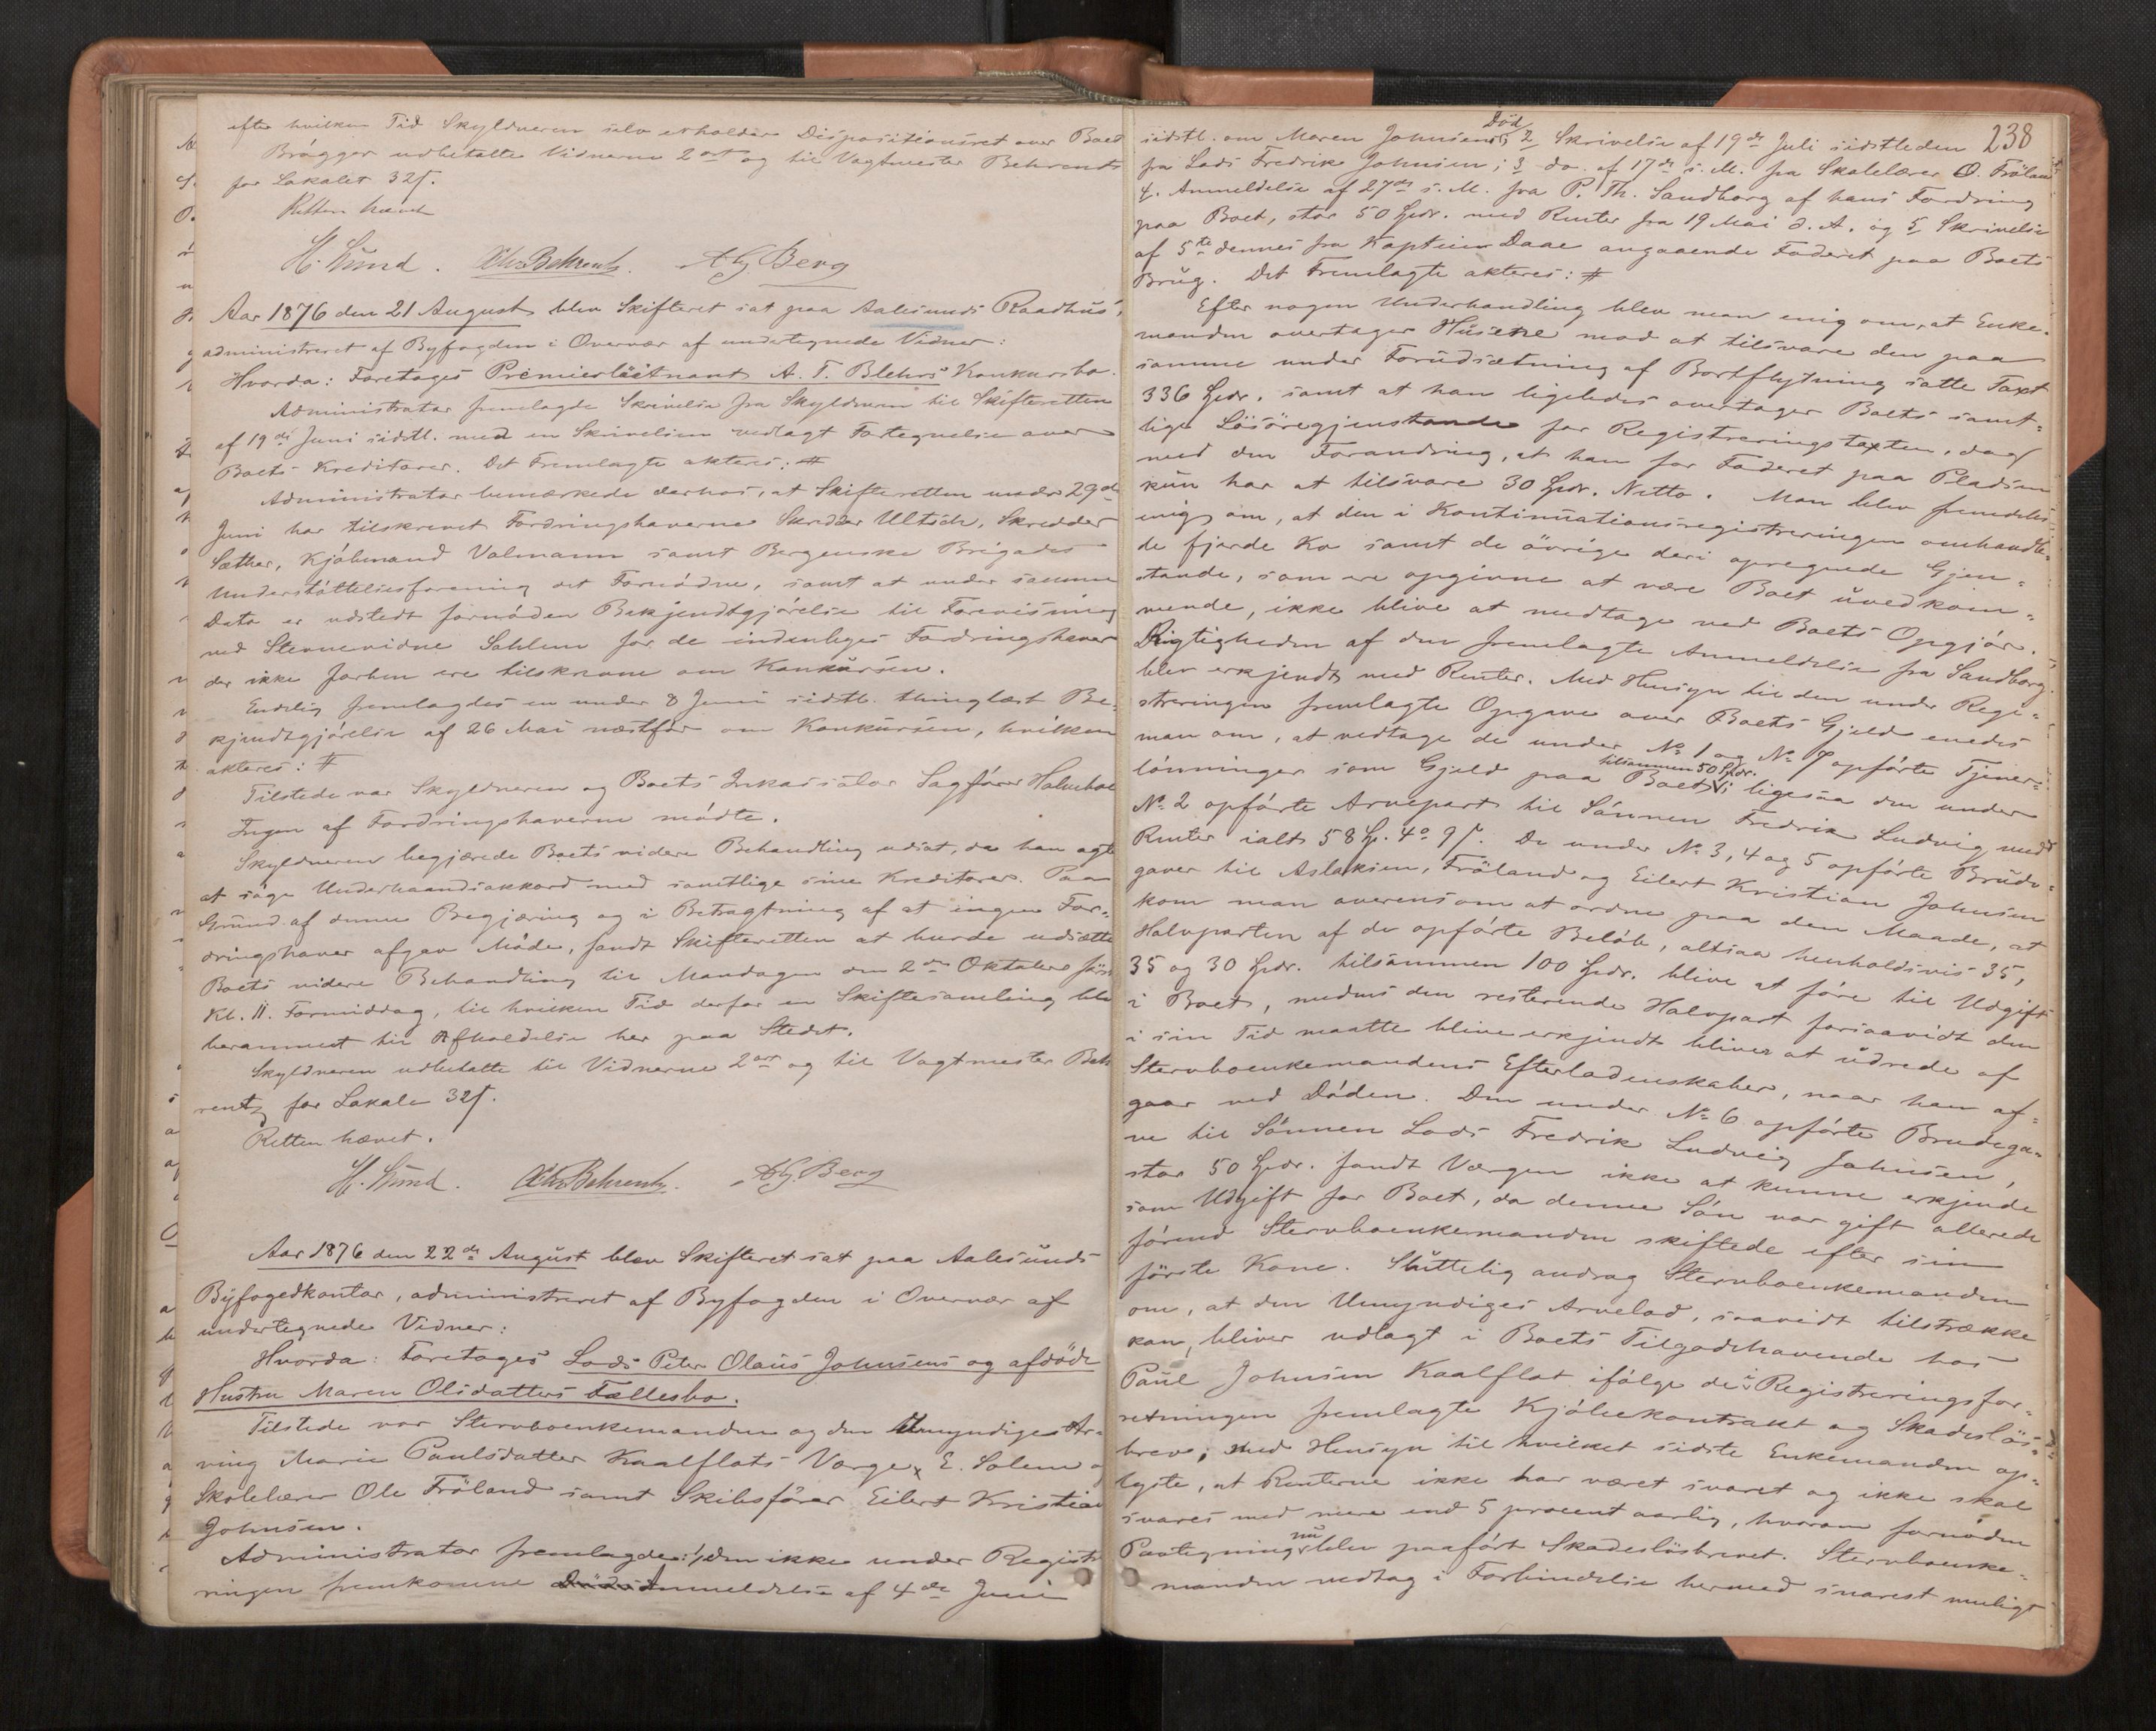 efter hvilken Tid Skyldneren selv erholder Dispositionsret over Boet
Brögger udbetalte Vidnerne 2 ort og til Vagtmester Behrentz
for Lokalet 32 ſ.
Retten hævet
H. Lund. Chr. Behrentz. A G Berg
Aar 1876 den 21 August blev Skifteret sat paa Aalesunds Raadhus,
administreret af Byfogden i Overvær af undertegnede Vidner:
Hvorda: Foretages Premierløitnant A. T. Blehrs Konkursbo.
Administrator fremlagde Skrivelse fra Skyldneren til Skifteretten
af 19de Juni sidstl. med en Skrivelsen vedlagt Fortegnelse over
Boets Kreditorer. Det Fremlagte akteres: #
Administrator bemærkede derhos, at Skifteretten under 29de
Juni har tilskrevet Fordringshaverne Skredder Ultsch, Skredder
Sæther, Kjöbmand Volmann samt Bergenske Brigades
Understöttelsesforening det Fornödne, samt at under samme
Dato er udstedt fornöden Bekjendtgjörelse til Forevisning
ved Stevnevidne Sahlem for de indenbyes Fordringshaver
der ikke forhen ere tilskrevne om Konkursen.
Endelig fremlagdes en under 8 Juni sidstl. thinglæst Be-
kjendtgjörelse af 26 Mai næstfør om Konkursen, hvilken
akteres: #
Tilstede var Skyldneren og Boets Inkassator Sagförer Holmboe
Ingen af Fordringshaverne mödte.
Skyldneren begjærede Boets videre Behandling udsat, da han agte
at söge Underhaandsakkord med samtlige sine Kreditorer. Paa
Grund af denne Begjæring og i Betragtning af at ingen For-
dringshaver afgav Möde, fandt Skifteretten at burde udsætte
Boets videre Behandling til Mandagen den 2den Oktober först
Kl. 11. Formiddag, til hvilken Tid derfor en Skiftesamling blev
berammet til Afholdelse her paa Stedet.
Skyldneren udbetalte til Vidnerne 2 ort og til Vagtmester Beh
rentz for Lokale 32 ſ.
Retten hævet.
H. Lund. Chr. Behrentz. A G Berg
Aar 1876 den 22de August blev Skifteret sat paa Aalesunds
Byfogedkontor, administreret af Byfogden i Overvær af
undertegnede Vidner:
Hvorda: Foretages Lods Peter Olaus Johnsens og afdöde
Hustru Maren Olsdatters Fællesbo.
Tilstede var Stervboenkemanden og den Umyndige Ar-
ving Marie Paulsdatter Kaalflots Værge, E. Solem og
Skolelærer Ole Fröland samt Skibsförer Eilert Kristian
Johnsen.
Administrator fremlagde: 1, den ikke under Registre
ringen fremkomne Anmeldelse af 4de Juni
238
sidstl. om Maren Johnsens Död, 2 Skrivelse af 19de Juli sidstleden
fra Lods Fredrik Johnsen; 3 do. af 17de s. M. fra Skolelærer O. Fröland
4. Anmeldelse af 27de s. M. fra P. Th. Sandborg af hans Fordring
paa Boet, stor 50 Spdr. med Renter fra 19 Mai d. A. og 5 Skrivelse
af 5te dennes fra Kaptein Daae angaaende Foderet paa Boets
Brug. Det Fremlagte akteres: #
Efter nogen Underhandling blev man enig om, at Enke-
manden overtager Husene mod at tilsvare den paa
samme under Forudsætning af Bortflytning satte Taxt
336 Spdr. samt at han ligeledes overtager Boets samt-
lige Lösöregjenstande for Registreringstaxten, dog
med den Forandring, at han for Foderet paa Pladsen
kun har at tilsvare 30 Spdr. Netto. Man blev fremdeles
enig om, at den i Kontinuationsregistreringen omhandle-
de fjerde Ko samt de övrige deri opregnede Gjen-
stande, som ere opgivne at være Boet uvedkom-
mende, ikke blive at medtage ved Boets Opgjör.
Rigtigheden af den fremlagte Anmeldelse fra Sandborg
blev erkjendt med Renter. Med Hensyn til den under Regi-
streringen fremlagte Opgave over Boets Gjeld enedes
man om, at vedtage de under No 1 og No 7 opförte Tjener-
lönninger som Gjeld paa Boet, tilsammen 50 Spdr.; ligesaa den under
No 2 opförte Arvepart til Sönnen Fredrik Ludvig med
Renter ialt 58 Sp. 4 o 9 ſ. De under No 3, 4 og 5 opförte Brude-
gaver til Aslaksen, Fröland og Eilert Kristian Johnsen
kom man overens om at ordne paa den Maade, at
Halvparten af de opförte Belöb, altsaa henholdsvis 35,
35 og 30 Spdr. tilsammen 100 Spdr. blive at före til Udgift
i Boet, medens den resterende Halvpart forsaavidt den
i sin Tid maatte blive erkjendt bliver at udrede af
Stervboenkemandens Efterladenskaber, naar han af-
gaar ved Döden. Den under No 6 opförte Brudega-
ve til Sönnen Lods Fredrik Ludvig Johnsen,
stor 50 Spdr. fandt Værgen ikke at kunne erkjende
som Udgift for Boet, da denne Sön var gift allerede
förend Stervboenkemanden skiftede efter sin
förste Kone. Sluttelig androg Stervboenkemanden
om, at den Umyndiges Arvelod, saavidt tilstrække
kan, bliver udlagt i Boets Tilgodehavende hos
Paul Johnsen Kaalflot ifölge de i Registreringsfor-
retningen fremlagte Kjöbekontrakt og Skadeslös-
brev, med Hensyn til hvilket sidste Enkemanden op-
lyste, at Renterne ikke har været svaret og ikke skal
svares med mere end 5 procent aarlig, hvorom fornöden
Paategning nu blev paafört Skadeslösbrevet. Stervboenke-
manden vedtog i Forbindelse hermed snarest muligt